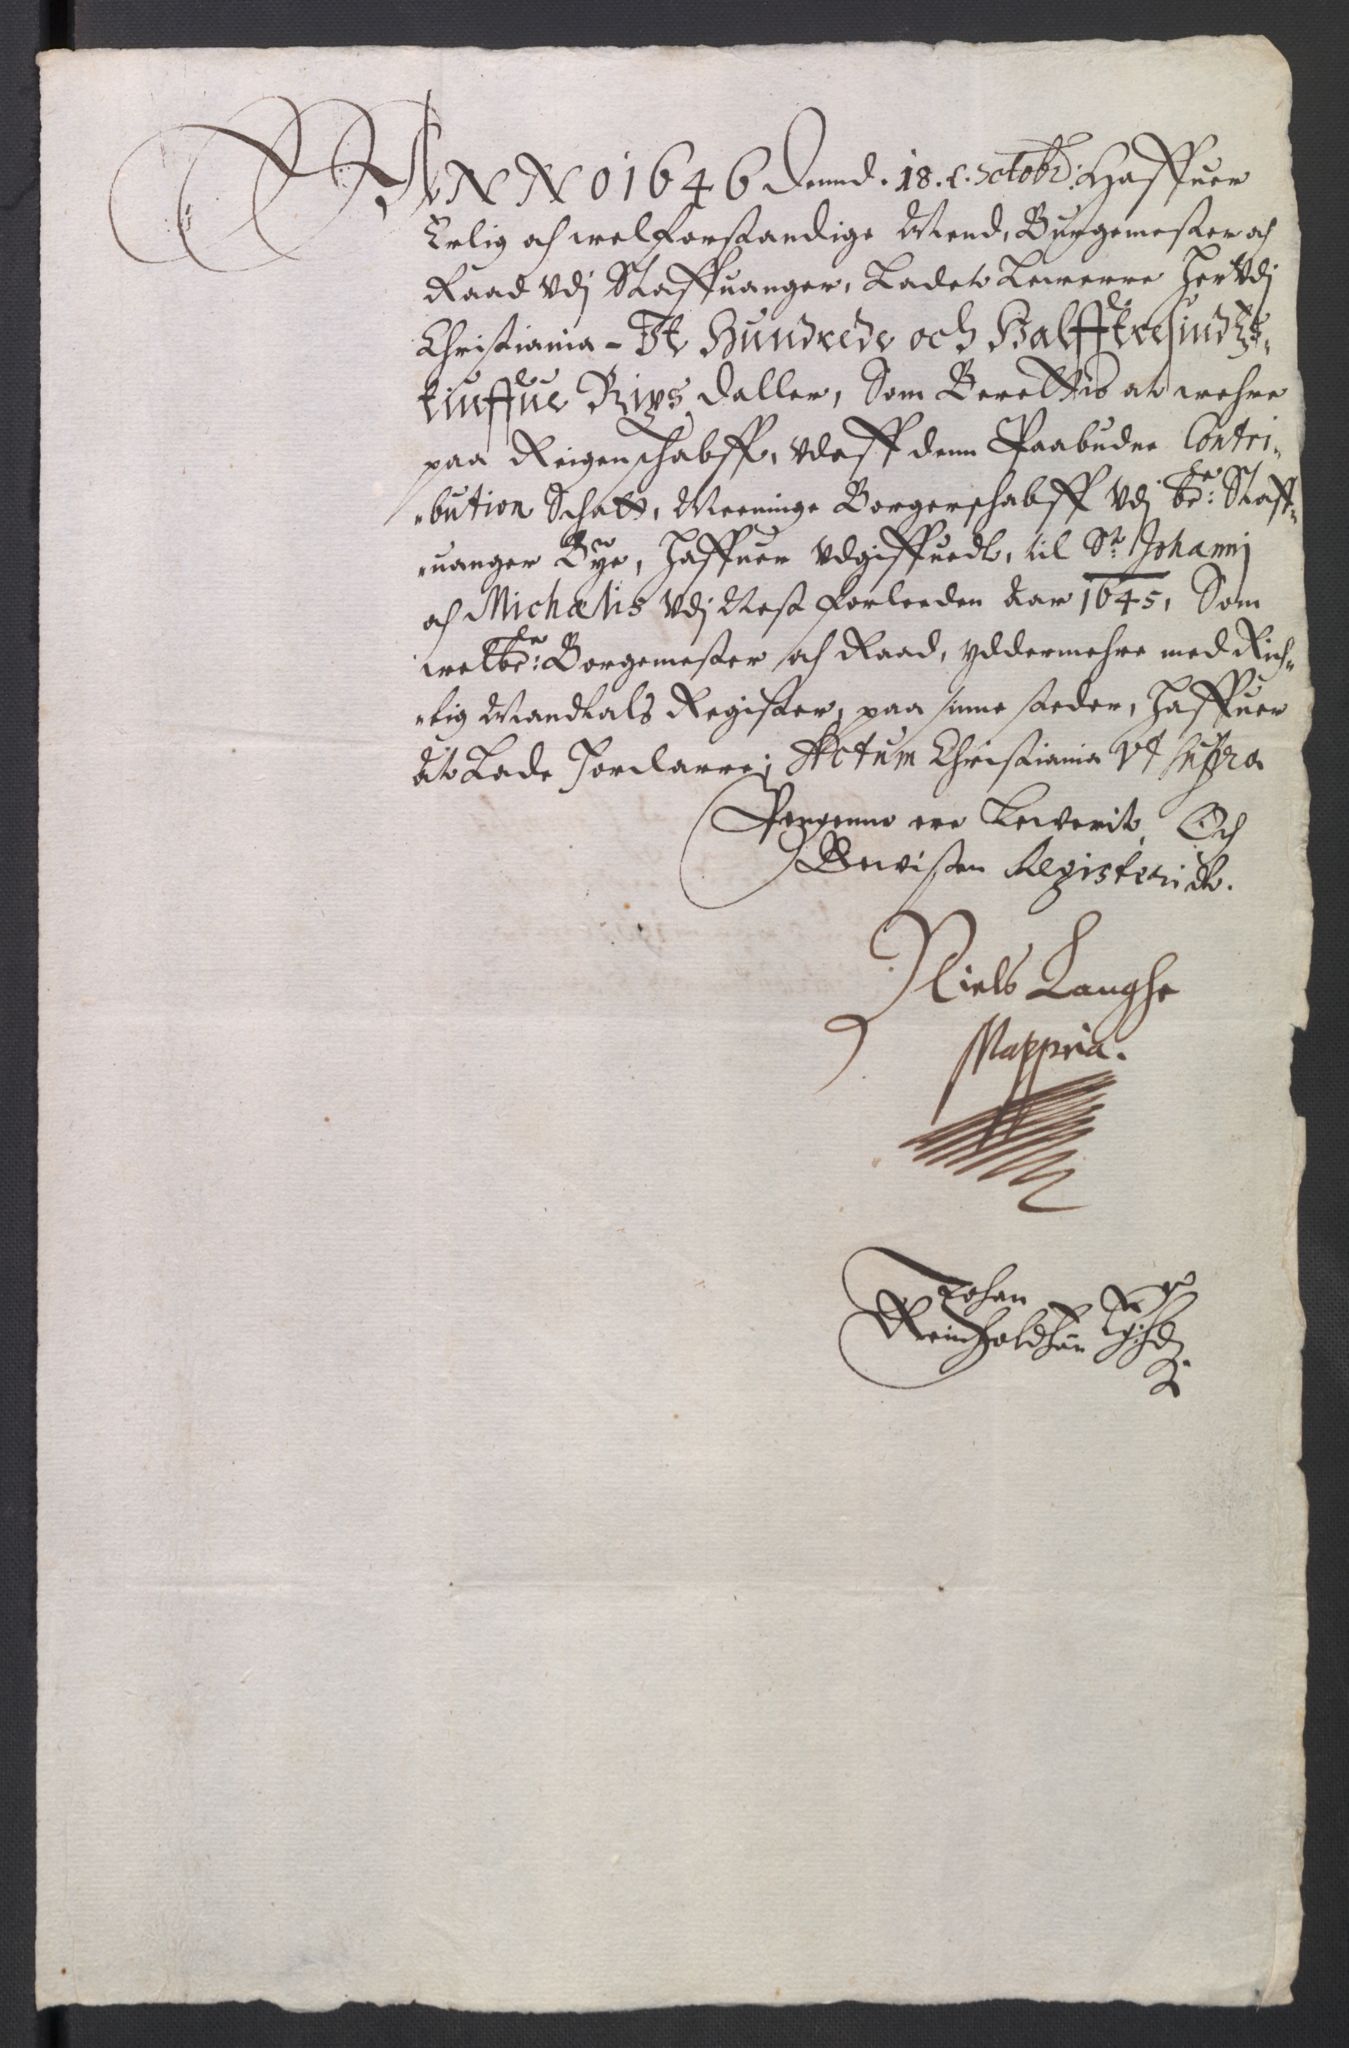 ANNO 1646 dennd. 18. Octobr: Haffuer
Erlig och welforstandige Mend, Burgemester och
Raad Vdj Staffuanger, Ladet Leuerre her Vdj
Christiania – It Hundrede och Halfftresindtz-
tiuffue Rixs daller, Som Berettis at wehre
paa Reigenschabff, vdaff denn Paabudne Contri-
bution Schatt, Meeninge Borgerschabff Vdj be:te Staff-
uanger Bye, haffuer vdgiffuedt, til St. Johannj
och Michaelis Vdj Nest forleeden Aar 1645, Som
welbe:te Borgemester och Raad, yddermehre med Rich-
tig Mandtals Register, paa sinne steder, haffuer
at Lade forclarre; Actum Christiania Vt supra
Pengenne ere Leverit, Och
Bewisten Registeridt.
Niels Langhe
Mappria.
Johan
Reinholdsøn